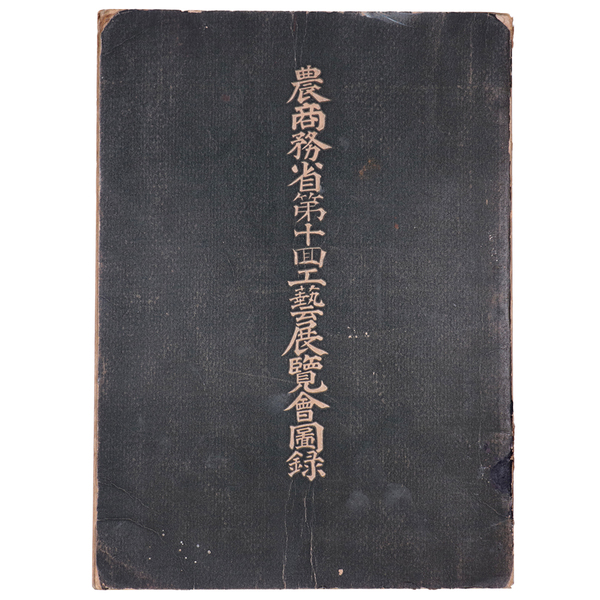 農商務省第十回工藝展覽會圖録